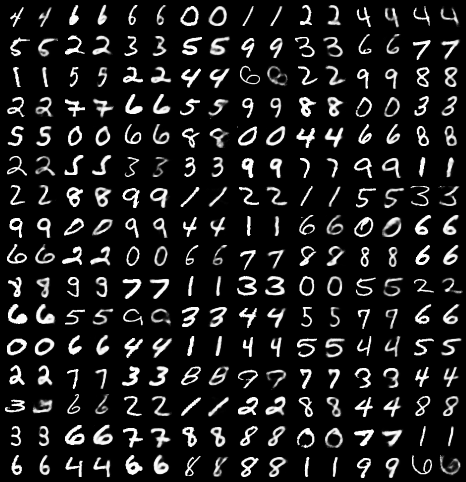 4 4 6 6 6 6 0 0 1 1 2 2 4 4 4 4
5 5 2 2 3 3 5 5 9 9 3 3 6 6 7 7
1 1 5 5 2 2 4 4 6 6 2 2 9 9 8 8
2 2 7 7 6 6 5 5 9 9 8 8 0 0 3 3
5 5 0 0 6 6 8 8 0 0 4 4 6 6 8 8
2 2 5 5 3 3 3 3 9 9 7 7 9 9 1 1
2 2 8 8 9 9 1 1 2 2 1 1 5 5 3 3
9 9 0 0 9 9 4 4 1 1 6 6 0 0 6 6
6 6 2 2 0 0 6 6 7 7 8 8 8 8 6 6
8 8 9 9 7 7 1 1 3 3 0 0 5 5 2 2
6 6 5 5 9 9 3 3 4 4 5 5 7 9 6 6
0 0 6 6 4 4 1 1 4 4 5 5 4 4 5 5
2 2 7 7 3 3 8 8 9 9 7 7 3 3 4 4
3 3 6 6 2 2 1 1 2 2 8 8 4 4 8 8
3 3 6 6 7 7 8 8 8 8 0 0 7 7 1 1
6 6 4 4 6 6 8 8 8 8 1 1 9 9 6 6